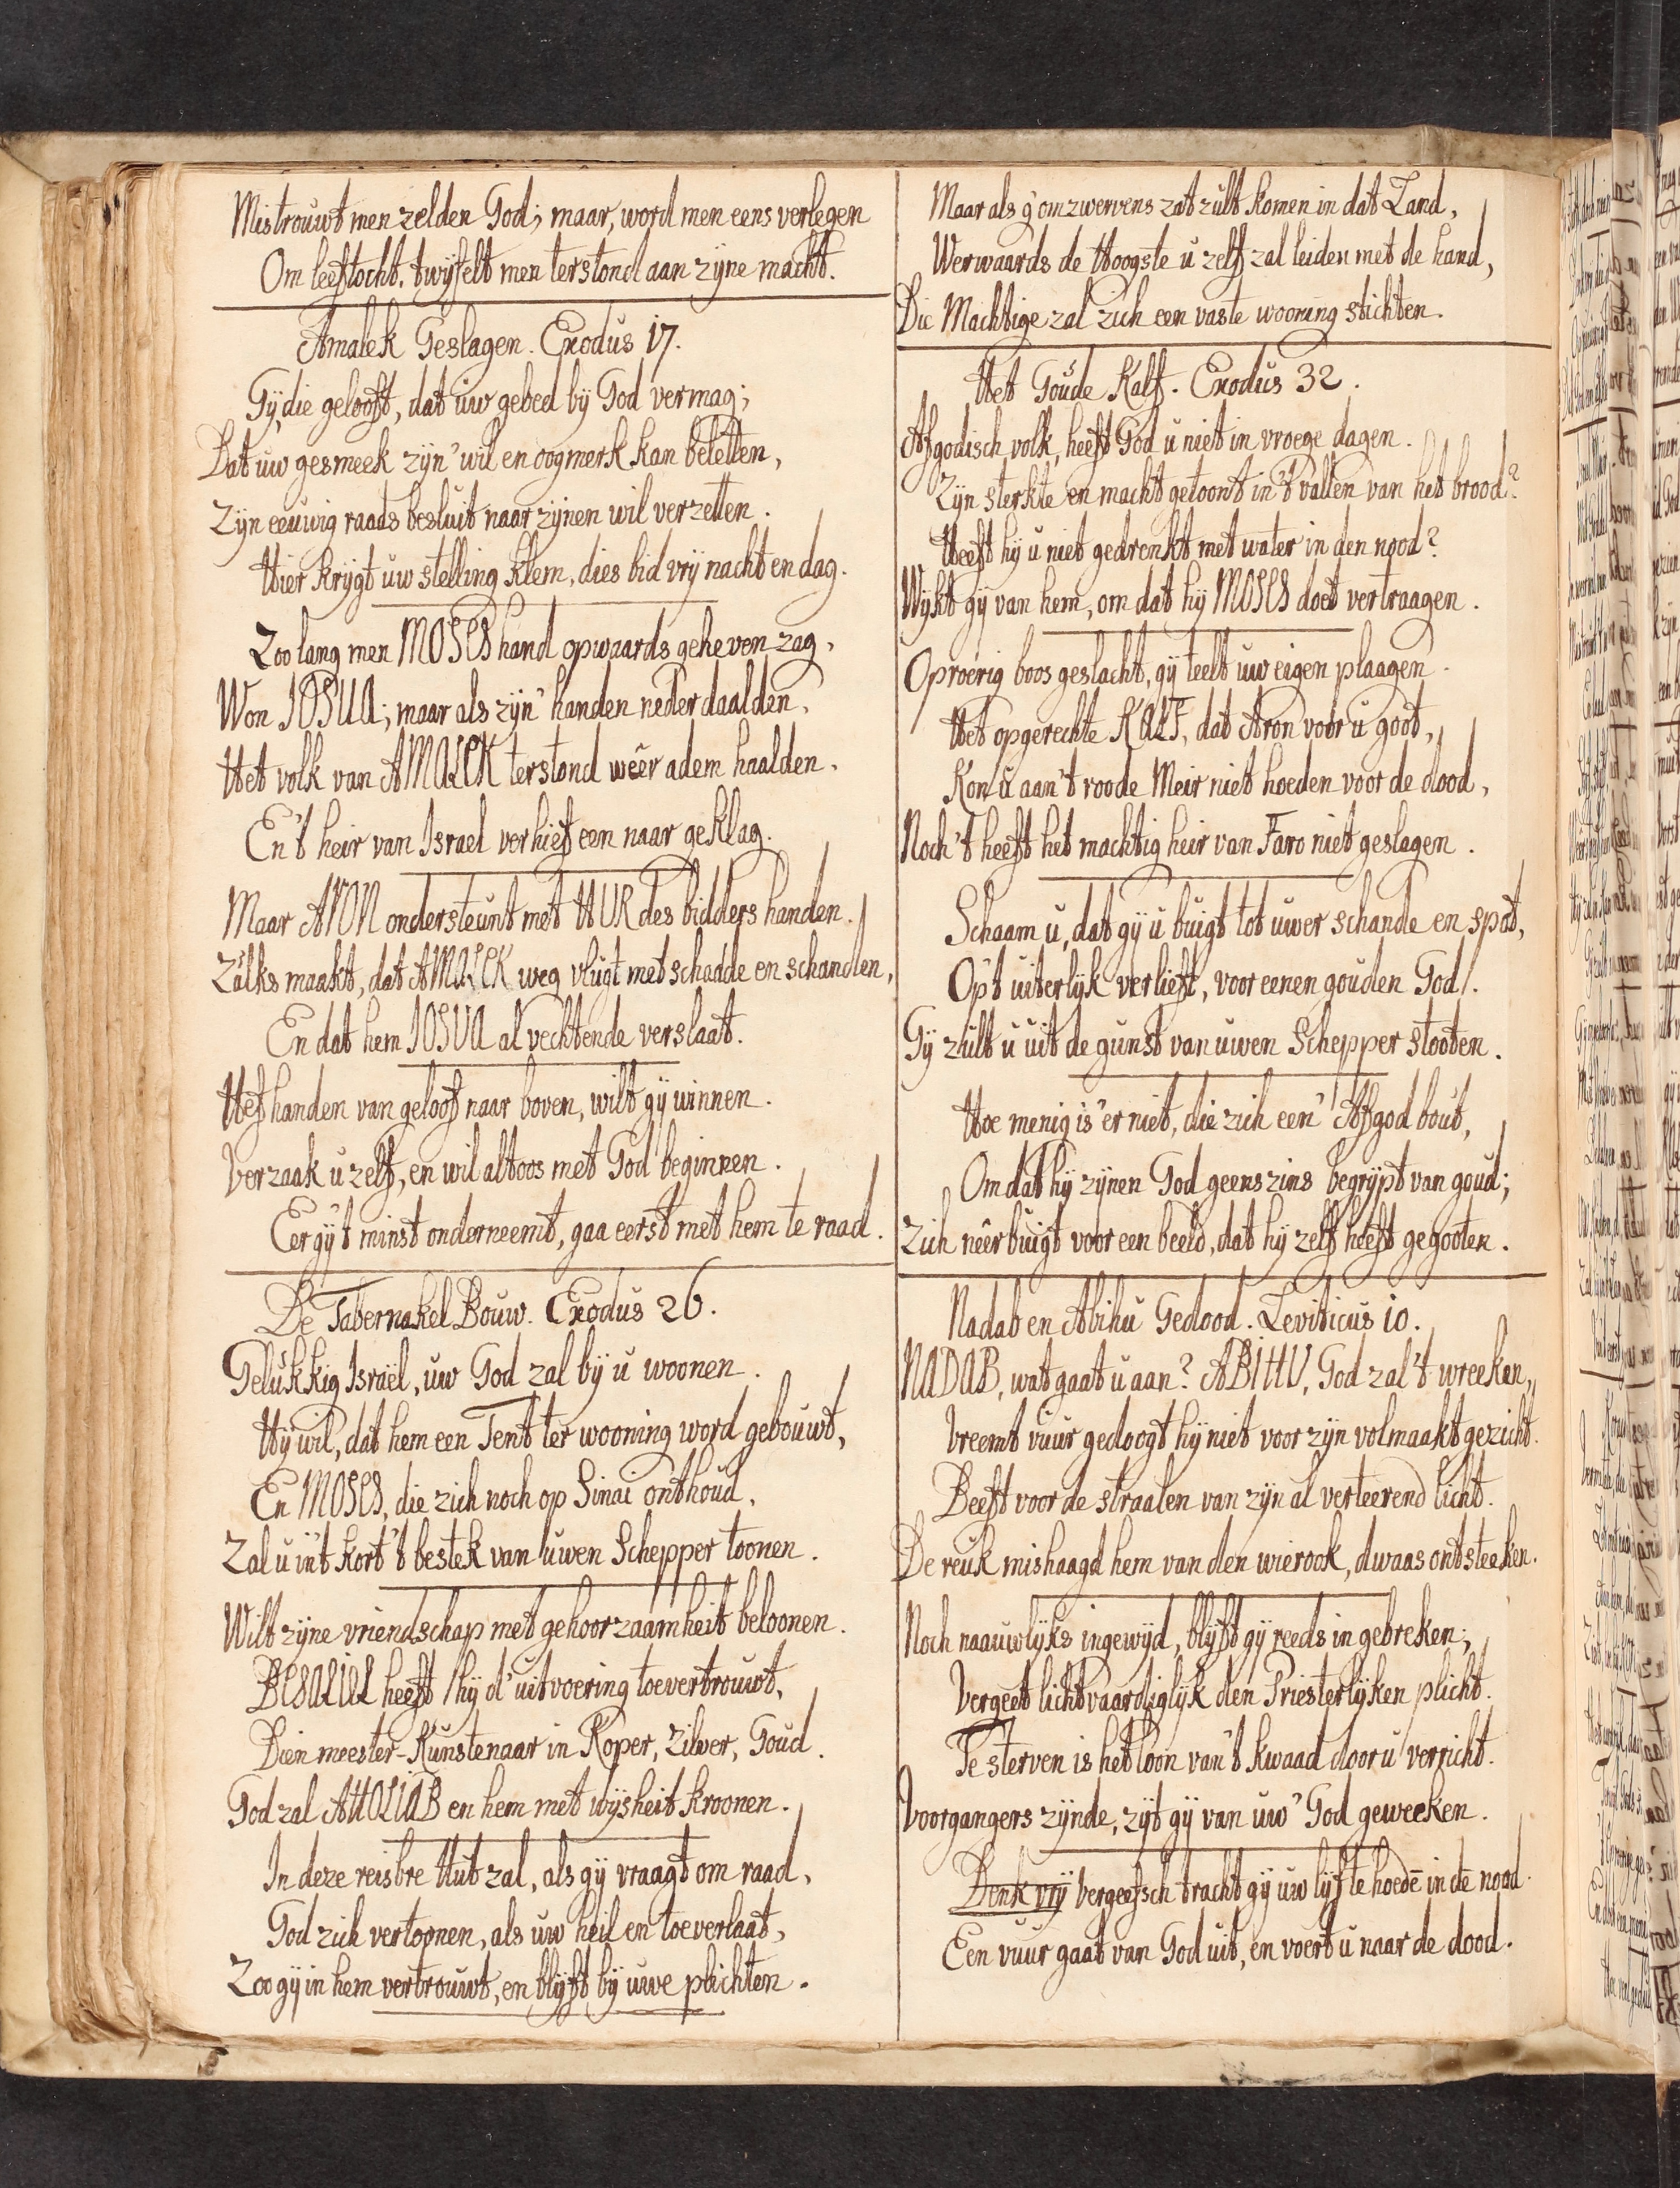 Mistrouwt men zelden God; maar, word men eens verlegen
Om leeftocht, twyfelt men terstond aan zyne macht.
Amalek Geslagen. Exodus 17.
Gy, die gelooft, dat uw gebed by God vermag;
Dat uw gesmeek zyn' wil en oogmerk kan beletten,
Zyn eeuwig raads besluit naar zynen wil verzetten.
Hier krygt uw stelling klem, dies bid vry nacht en dag.
Zoo lang men MOSES hand opwaards geheven zag,
Won JOSUA; maar als zyn' handen neder daalden,
Het volk van AMALEK terstond wêer adem haalden,
En 't heir van Israel verhief een naar geklag.
Maar ARON ondersteunt met HUR des bidders handen.
Zulks maakt, dat AMALEK weg vlugt met schadde en schanden,
En dat hem JOSUA al vechtende verslaat.
Hef handen van geloof naar boven, wilt gy winnen.
Verzaak u zelf, en wil altoos met God beginnen.
Eer gy 't minst onderneemt, gaa eerst met hem te raad.
De Tabernakel Bouw. Exodus 26.
Gelukkig Israël, uw God zal by u woonen.
Hy wil, dat hem een Tent ter wooning word gebouwt,
En MOSES, die zich noch op Sinai onthoud,
Zal u in 't kort 't bestek van uwen Schepper toonen.
Wilt zyne vriendschap met gehoorzaamheit beloonen.
BESALIEL heeft hy d' uitvoering toevertrouwt,
Dien meester-Kunstenaar in Koper, Zilver, Goud.
God zal AHOLIAB en hem met wysheit kroonen.
In deze reisbre Hut zal, als gy vraagt om raad,
God zich vertoonen, als uw heil en toeverlaat,
Zoo gy in hem vertrouwt, en blyft by uwe plichten.
Maar als g' omzwervens zat zult komen in dat Land,
Werwaards de Hoogste u zelf zal leiden met de hand,
Die Machtige zal zich een vaste wooning stichten.
Het Goude Kalf. Exodus 32.
Afgodisch volk, heeft God u niet in vroege dagen.
Zyn sterkte en macht getoont in 't vallen van het brood?
Heeft hy u niet gedrenkt met water in den nood?
Wykt gy van hem, om dat hy MOSES doet vertraagen.
Oproerig boos geslacht, gy teelt uw eigen plaagen.
Het opgerechte KALF, dat Aron voor u goot,
Kon u aan 't roode Meir niet hoeden voor de dood,
Noch 't heeft het machtig heir van Faro niet geslagen.
Schaam u, dat gy u buigt tot uwer schande en spot,
Op 't uiterlyk verlieft, voor eenen gouden God!.
Gy zult u uit de gunst van uwen Schepper stooten.
Hoe menig is 'er niet, die zich een' Afgod bout,
Omdat hy zynen God geenszins begrypt van goud;
Zich nêerbuigt voor een beeld, dat hy zelf heeft gegooten.
Nadab en Abihu Gedood. Leviticus 10.
NADAB, wat gaat u aan? ABIHU, God zal 't wreeken,
Vreemt vuur gedoogt hy niet voor zyn volmaakt gezicht.
Beeft voor de straalen van zyn al verteerend licht.
De reuk mishaagd hem van den wierook, dwaas ontsteeken.
Noch naauwlyks ingewyd, blyft gy reeds in gebreken;
Vergeet lichtvaardiglyk den Priesterlyken plicht.
Te sterven is het loon van 't kwaad door u verricht.
Voorgangers zynde, zyt gy van uw' God geweeken.
Denk vry vergeefsch tracht gy uw lyf te hoedē in dē nood.
Een vuur gaat van God uit, en voert u naar de dood.